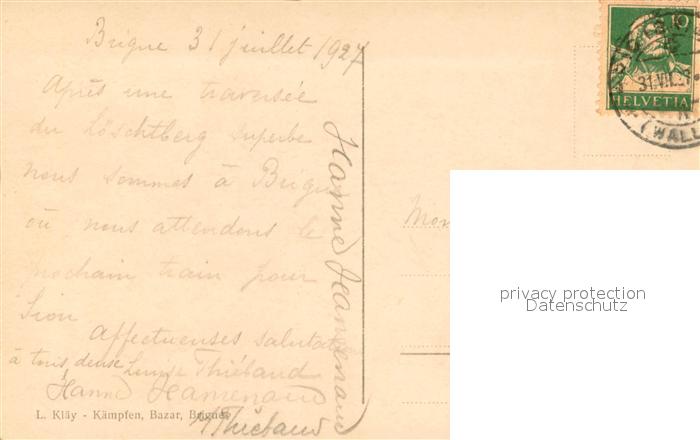 Brigue 31 juillet 1927
Après une traversée
du Löschtberg superbe
nous sommes à Brigue
où nous attendons le
prochain train pour
Sion
Affectueuses salutat
à tous deux Louise Thiébaud
Hanne
Thiébaud
Hanne
L. Kläy - Kämpfen, Bazar, Brigue
10
HELVETIA
31.VII.
(WALL
Mon
privacy protection
Datenschutz